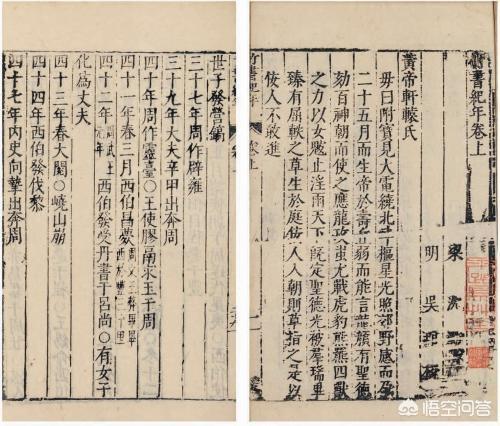 竹書紀年卷上
梁 沈
明 吳 琯 校
黃帝軒轅氏
母曰附寶見大電繞北斗樞星光照郊野感而孕
二十五月而生帝於壽丘弱而能言龍顏有聖德
劾百神朝而使之應龍攻蚩尤戰虎豹熊羆四獸
之力以女魃止淫雨天下既定聖德光被羣瑞畢
臻有屈軼之草生於庭佞人入朝則草指之是以
佞人不敢進
世子發營鎬
三十七年周作辟雍
三十九年大夫辛甲出奔周
四十年周作靈臺〇王使膠鬲求玉于周
四十一年春三月西伯昌薨
四十二年周武王元年西伯發受丹書于呂尚〇有女子
化為丈夫
四十三年春大閱〇嶢山崩
四十四年西伯發伐黎
四十七年內史向摯出奔周
悟空问答